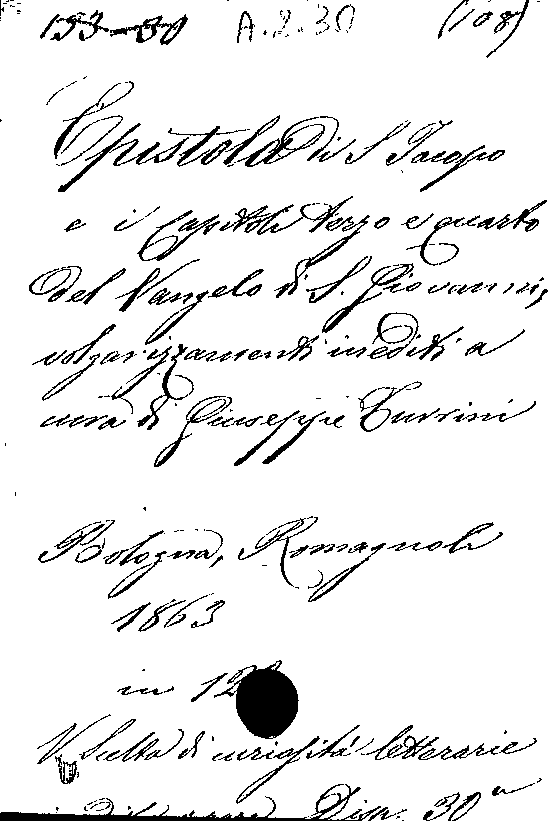 153-30 A.2.30 (108)
Epistola di S Jacopo
e i Capitoli terzo e quarto
del Vangelo di S. Giovanni,
volgarizzamenti inediti a
cura di Giuseppe Turrini
Bologna, Romagnoli
1863
in 12º
V. Scelta di curiosità letterarie
Disp. 30ª